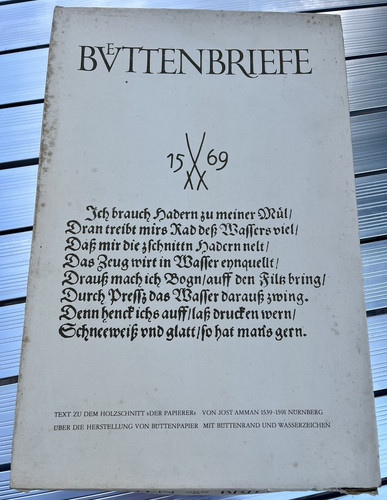 BVETTENBRIEFE
15 69
Ich brauch Hadern zu meiner Mül/
Dran treibt mirs Rad deß Wassers viel/
Daß mir die zschnittn Hadern nelt/
Das Zeug wirt in Wasser eynquellt/
Drauß mach ich Bogn/auff den Filtz bring/
Durch Pressz das Wasser darauß zwing.
Denn henck ichs auff/laß drucken wern/
Schneeweiß vnd glatt/so hat mans gern.
TEXT ZU DEM HOLZSCHNITT »DER PAPIERER« VON JOST AMMAN 1539-1591 NÜRNBERG
ÜBER DIE HERSTELLUNG VON BÜTTENPAPIER MIT BÜTTENRAND UND WASSERZEICHEN